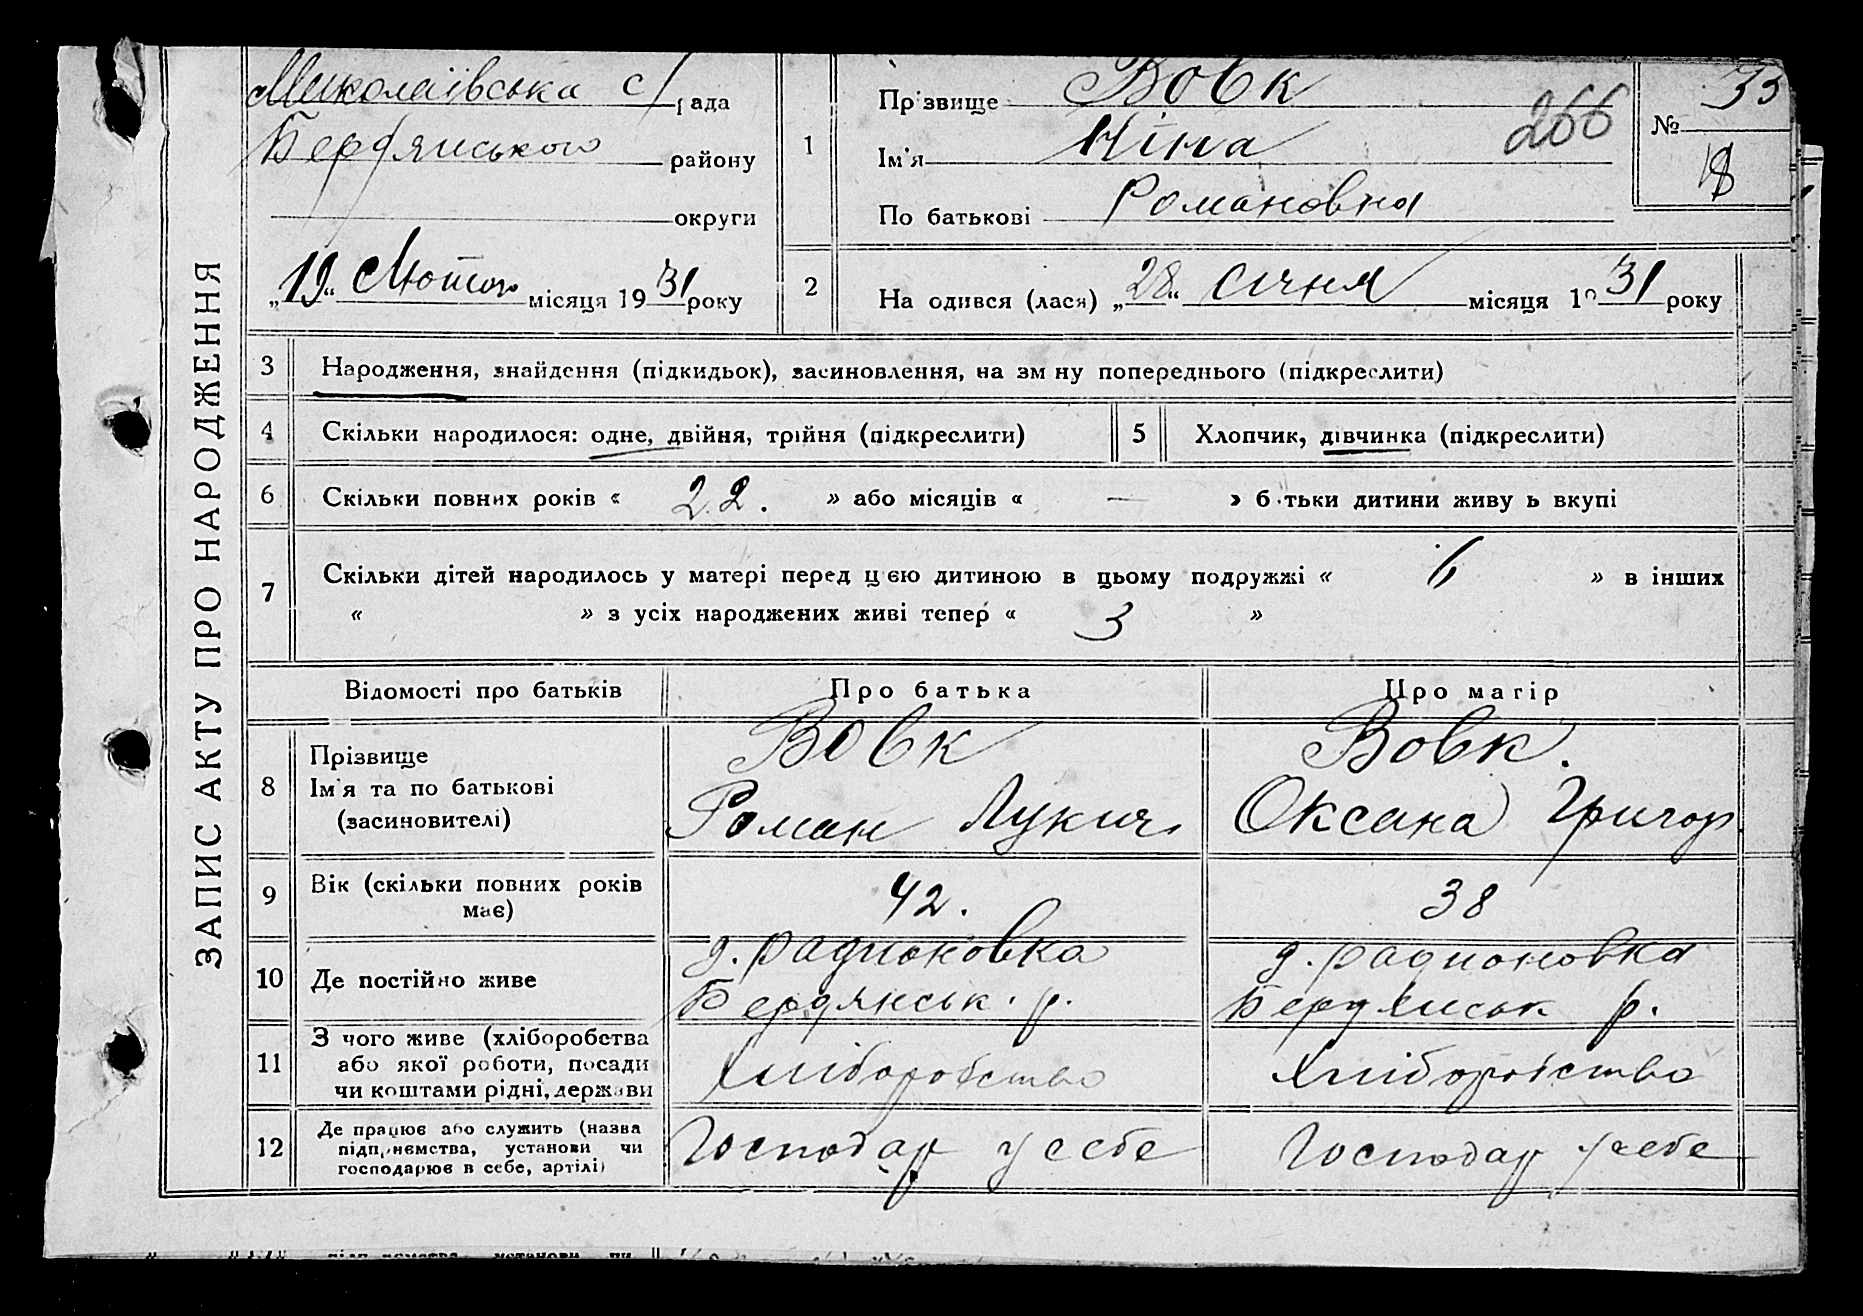 ЗАПИС АКТУ ПРО НАРОДЖЕННЯ
Миколаївська с/рада
Бердянського району
округи
„19“ Лютого місяця 1931 року
1
Прізвище Вовк
Ім'я Ніна
По батькові Романовна
266
№ 35
18
2
На одився (лася) „28“ січня місяця 1931 року
3 Народження, знайдення (підкидьок), засиновлення, на зм ну попереднього (підкреслити)
4 Скільки народилося: одне, двійня, трійня (підкреслити)
5 Хлопчик, дівчинка (підкреслити)
6 Скільки повних років « 22. » або місяців « — » б тьки дитини живу ь вкупі
7 Скільки дітей народилось у матері перед цією дитиною в цьому подружжі « 6 » в інших
« » з усіх народжених живі тепер « 3 »
Відомості про батьків Про батька Про матір
8 Прізвище Вовк Вовк.
Ім'я та по батькові Роман Лукич Оксана Григор
(засиновителі)
9 Вік (скільки повних років має) 42. 38
10 Де постійно живе д. Радионовка д. Радионовка
Бердянськ. р. Бердянськ р.
11 З чого живе (хліборобства Хліборобство Хліборобство
або якої роботи, посади
чи коштами рідні, держави
12 Де працює або служить (назва Господар у себе Господар у себе
підприємства, установи чи
господарює в себе, артілі)